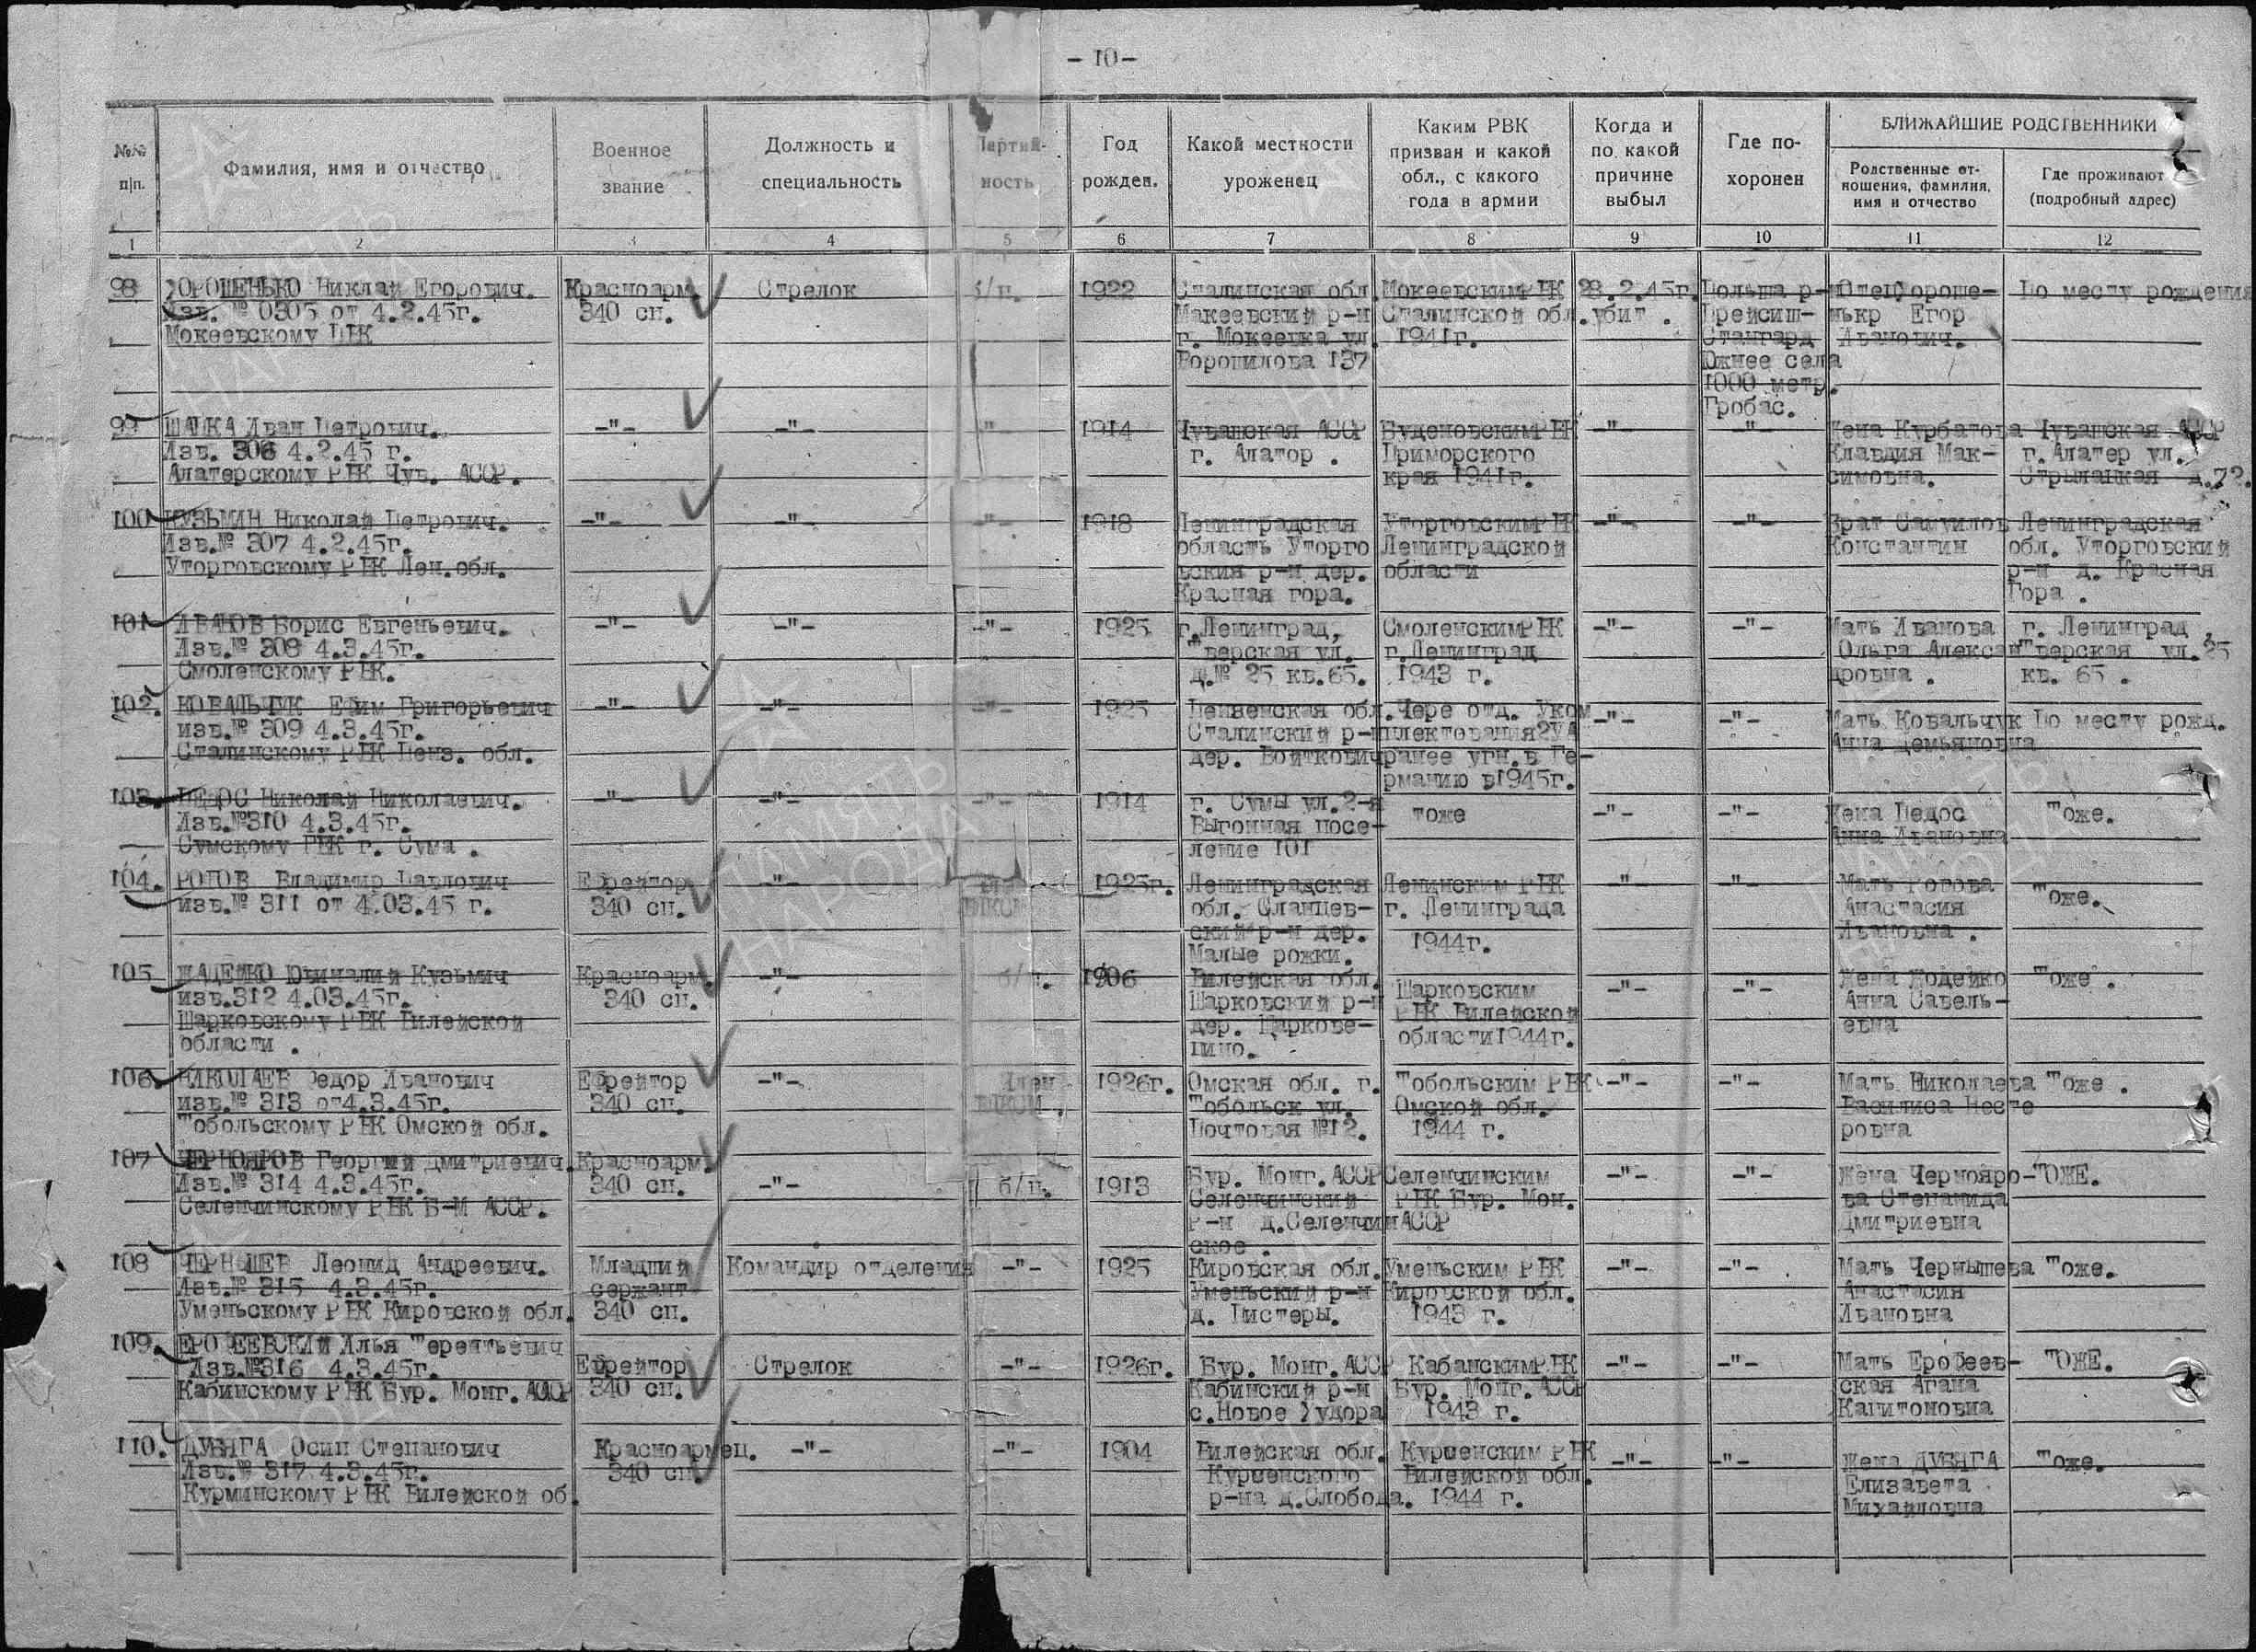 - 10 -
№№ п/п.
Фамилия, имя и отчество
Военное звание
Должность и специальность
Партий- ность
Год рожден.
Какой местности уроженец
Каким РВК призван и какой обл., с какого года в армии
Когда и по какой причине выбыл
Где по- хоронен
БЛИЖАЙШИЕ РОДСТВЕННИКИ
Родственные от- ношения, фамилия, имя и отчество
Где проживают (подробный адрес)
1 2 3 4 5 6 7 8 9 10 11 12
98 ДОРОШЕНЬКО Николай Егорович. Красноарм. Стрелок б/п. 1922 Сталинская обл. Мокеевским РВК 28.2.45г. Польша р-н Отец Дороше- По месту рождения
Изв. № 0305 от 4.2.45г. 340 сп. Макеевский р-н Сталинской обл. убит. Прейсиш- нькр Егор
Мокеевскому РВК г. Мокеевка ул. 1941г. Старгард Иванович.
Ворошилова 137 Южнее села
1000 метр.
Гробас.
99 ШАПКА Иван Петрович. -"- -"- -"- 1914 Чувашская АССР Буденовским РВК -"- -"- Жена Курбатова Чувашская АССР
Изв. 306 4.2.45 г. г. Алатор. Приморского Клавдия Мак- г. Алатер ул.
Алатерскому РВК Чув. АССР. края 1941г. симовна. Стрылацкая д.72.
100 КУЗЬМИН Николай Петрович. -"- -"- -"- 1918 Ленинградская Уторговским РВК -"- -"- Брат Самуилов Ленинградская
Изв.№ 307 4.2.45г. область Уторго Ленинградской Константин обл. Уторговский
Уторговскому РВК Лен.обл. вския р-н дер. области р-н д. Красная
Красная гора. Гора.
101 ИВАНОВ Борис Евгеньевич. -"- -"- -"- 1925 г. Ленинград, Смоленским РВК -"- -"- Мать Иванова г. Ленинград,
Изв.№ 308 4.3.45г. Тверская ул. г. Ленинград Ольга Алексан Тверская ул.25
Смоленскому РВК. д.№ 25 кв.65. 1943 г. дровна. кв. 65.
102. КОВАЛЬЧУК Ефим Григорьевич -"- -"- -"- 1925 Пензенская обл. Чере отд. Уком -"- -"- Мать Ковальчук По месту рожд.
изв.№ 309 4.3.45г. Сталинский р-н плектования 2УА Анна Демьяновна
Сталинскому РВК Пенз. обл. дер. Войткович ранее угн. в Ге-
рманию в1945г.
103. ПЕДОС Николай Николаевич. -"- -"- -"- 1914 г. Сумы ул.2-я тоже -"- -"- Жена Педос Тоже.
Изв.№310 4.3.45г. Выгонная посе- Анна Ивановна
Сумскому ГВК г. Сума. ление 101
104. РОГОВ Владимир Павлович Ефрейтор -"- 1925г. Ленинградская Ленинским РВК -"- -"- Мать Рогова Тоже.
изв.№ 311 от 4.03.45 г. 340 сп. ВЛКСМ обл. Сланцев- г. Ленинграда Анастасия
ский р-н дер. 1944г. Ивановна.
Малые рожки.
105 ЖАДЕЙКО Ювиналий Кузьмич Красноарм. -"- б/п. 1906 Вилейская обл. Шарковским -"- -"- Жена Жодейко Тоже.
изв.312 4.03.45г. 340 сп. Шарковский р-н РВК Вилейской Анна Савель-
Шарковскому РВК Вилейской дер. Шаркове- области 1944г. евна
области. щино.
106. НИКОЛАЕВ Федор Иванович Ефрейтор -"- Член 1926г. Омская обл. г. Тобольским РВК -"- -"- Мать Николаева Тоже.
изв.№ 313 от4.3.45г. 340 сп. ВЛКСМ. Тобольск ул. Омской обл. Василиса Несте
Тобольскому РВК Омской обл. Почтовая №12. 1944 г. ровна
107 ЧЕРНОЯРОВ Георгий Дмитриевич. Красноарм. -"- б/п. 1913 Бур. Монг. АССР Селенчинским -"- -"- Жена Чернояро- ТОЖЕ.
Изв.№ 314 4.3.45г. 340 сп. Селенчинский РВК Бур. Мон. ва Степанида
Селенчинскому РВК Б-М АССР. р-н д.Селенчин АССР Дмитриевна
ское.
108 ЧЕРНЫШЕВ Леонид Андреевич. Младший Командир отделения -"- 1925 Кировская обл. Уменьским РВК -"- -"- Мать Чернышева Тоже.
Изв.№ 315 4.3.45г. сержант Уменьский р-н Кировской обл. Анастасия
Уменьскому РВК Кировской обл. 340 сп. д. Пистеры. 1943 г. Ивановна
109. ЕРОФЕЕВСКИЙ Илья Терентьевич Ефрейтор Стрелок -"- 1926г. Бур. Монг. АССР Кабанским РВК -"- -"- Мать Ерофеев- ТОЖЕ.
Изв.№316 4.3.45г. 340 сп. Кабинский р-н Бур. Монг. АССР ская Агана
Кабинскому РВК Бур. Монг. АССР с.Новое Худора 1943 г. Капитоновна
110. ДУБЯГА Осип Степанович Красноармец. -"- -"- 1904 Вилейская обл. Курщенским РВК -"- -"- Жена ДУБЯГА Тоже.
Изв.№ 317 4.3.45г. 340 сп. Курщенского Вилейской обл. Елизавета
Курминскому РВК Вилейской об. р-на д.Слобода. 1944 г. Михайловна
ПАМЯТЬ НАРОДА